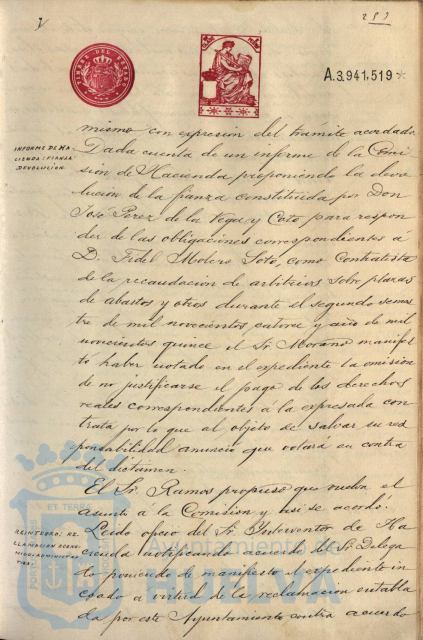 253
TIMBRE DEL ESTADO
A.3.941,519
mismo con expresión del trámite acordado.
INFORME DE HA
CIENDA: FIANZA
DEVOLUCION
Dada cuenta de un informe de la Comi
sión de Hacienda proponiendo la devo
lución de la fianza constituida por Don
José Perez de la Vega y Coto para respon
der de las obligaciones correspondientes á
D. Fidel Molero Soto, como Contratista
de la recaudacion de arbitrios sobre plazas
de abastos y otros durante el segundo semes
tre de mil novecientos catorce y año de mil
novecientos quince el Sr Morano manifes
tó haber notado en el expediente la omisión
de no justificarse el pago de los derechos
reales correspondientes á la expresada con
trata por lo que al objeto de salvar su res
ponsabilidad anunció que votará en contra
del dictámen.
El Sr Ramos propuso que vuelva el
asunto á la Comision y así se acordó.
REINTEGRO: RE
CLAMACION SOBRE
Leido oficio del Sr Interventor de Ha
cienda notificando acuerdo del Sr Delega
do poniendo de manifiesto el expediente in
coado á virtud de la reclamacion entabla
da por este Ayuntamiento contra acuerdo
HUELVA